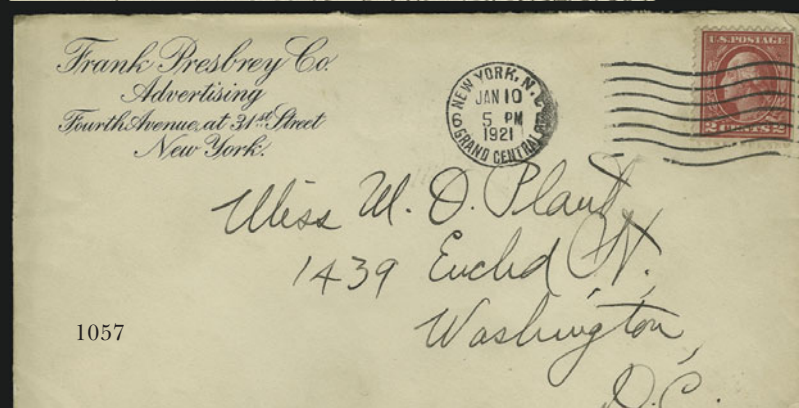 Frank Presbrey Co.
Advertising
Fourth Avenue, at 31st Street
New York.
NEW YORK, N.
JAN 10
5 PM
1921
GRAND CENTRAL
U.S. POSTAGE
2 CENTS 2
Miss M. O. Plant
1439 Euclid St.
Washington,
D.C.
1057